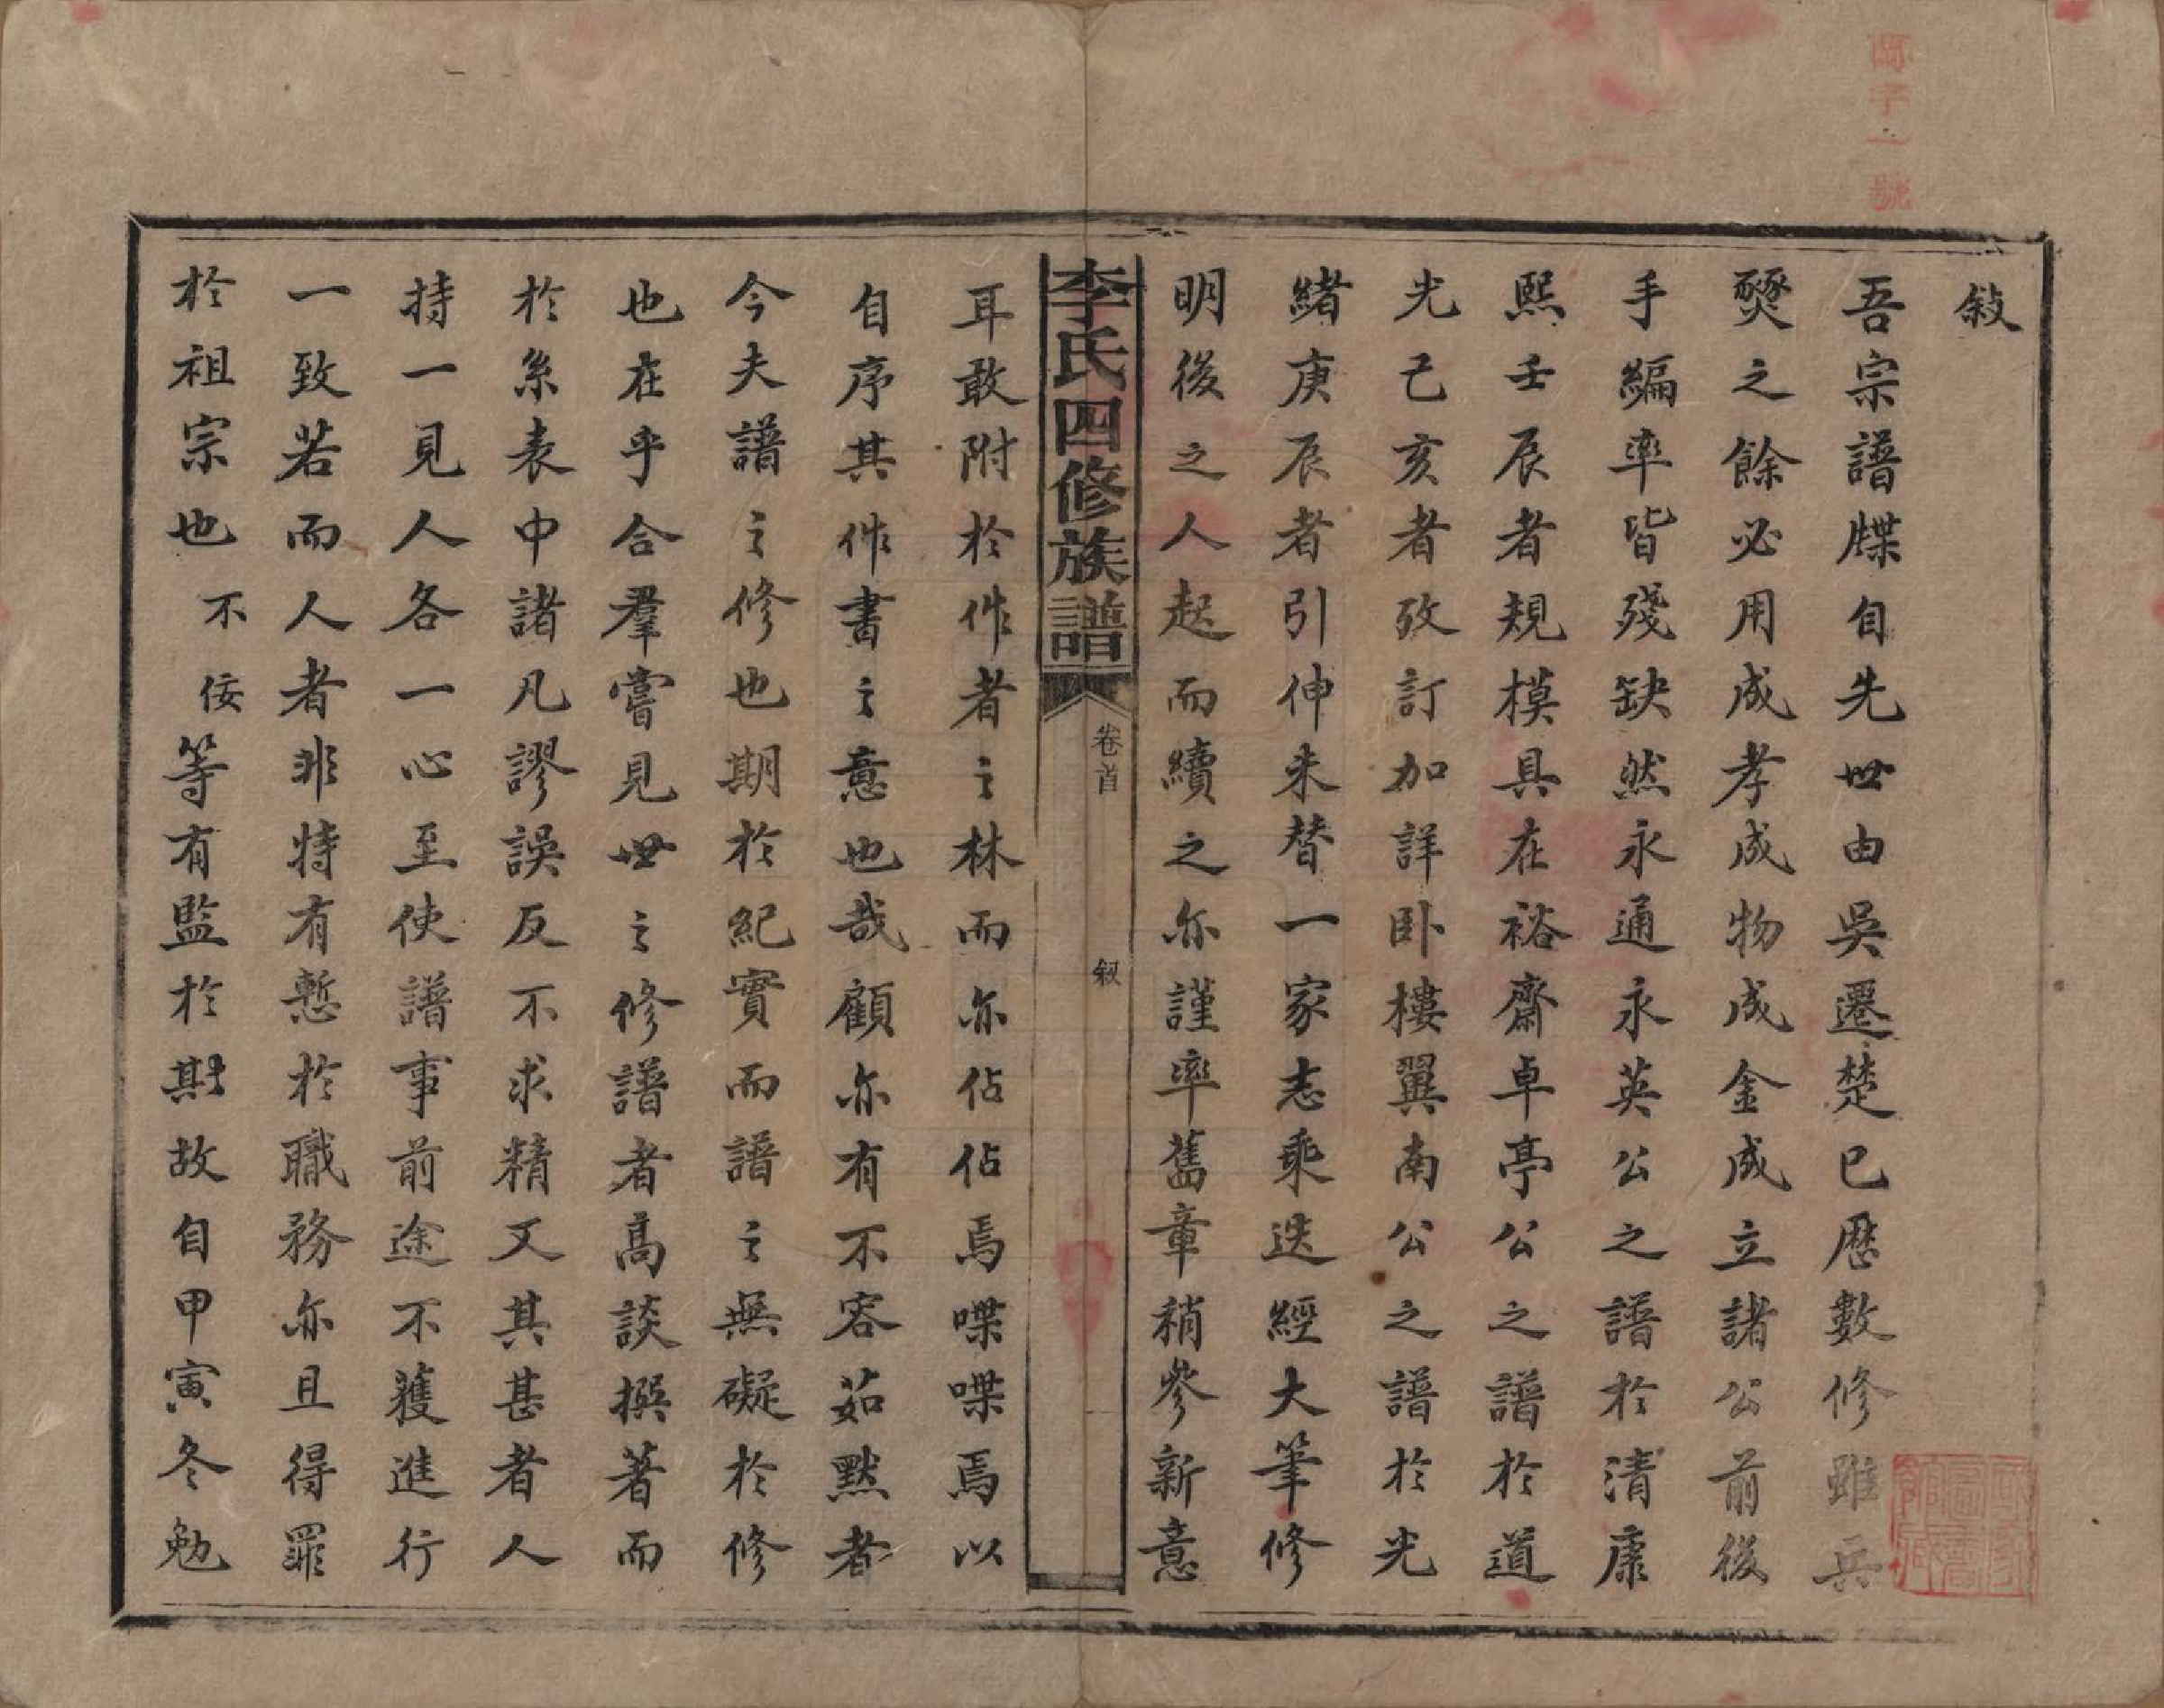 敍
吾宗譜牒自先世由吳遷楚已歷數修雖兵
燹之餘必用成孝成物成金成立諸公前後
手編率皆殘缺然永通永英公之譜於清康
熙壬辰者規模具在裕齋卓亭公之譜於道
光己亥者攷訂加詳卧樓翼南公之譜於光
緒庚辰者引伸未替一家志乘迭經大筆修
明後之人起而續之亦謹率舊章稍參新意
李氏四修族譜
卷首
敍
耳敢附於作者之林而亦佔佔焉喋喋焉以
自序其作書之意也哉顧亦有不容茹默者
今夫譜之修也期於紀實而譜之無礙於修
也在乎合羣嘗見世之修譜者高談撰著而
於系表中諸凡謬誤反不求精又其甚者人
持一見人各一心至使譜事前途不獲進行
一致若而人者非特有慙於職務亦且得罪
於祖宗也不佞等有監於斯故自甲寅冬勉
字一號